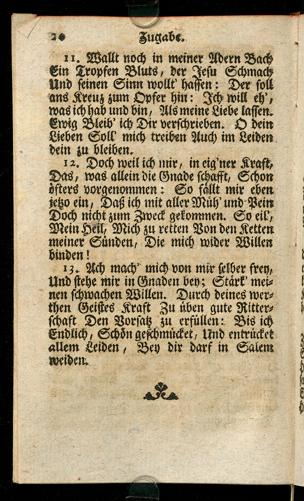 20 Zugabe.
11. Wallt noch in meiner Adern Bach
Ein Tropfen Bluts, der Jesu Schmach
Und seinen Sinn wollt' hassen: Der soll
ans Kreuz zum Opfer hin: Ich will eh',
was ich hab und bin, Als meine Liebe lassen.
Ewig Bleib' ich Dir verschrieben. O dein
Lieben Soll mich treiben Auch im Leiden
dein zu bleiben.
12. Doch weil ich mir, in eig'ner Kraft,
Das, was allein die Gnade schafft, Schon
öfters vorgenommen: So fällt mir eben
jetzo ein, Daß ich mit aller Müh' und Pein
Doch nicht zum Zweck gekommen. So eil',
Mein Heil, Mich zu retten Von den Ketten
meiner Sünden, Die mich wider Willen
binden!
13. Ach mach' mich von mir selber frey,
Und stehe mir in Gnaden bey; Stärk' mei-
nen schwachen Willen. Durch deines wer-
then Geistes Kraft Zu üben gute Ritter-
schaft Den Vorsatz zu erfüllen: Bis ich
Endlich, Schön geschmücket, Und entrücket
allem Leiden, Bey dir darf in Salem
weiden.